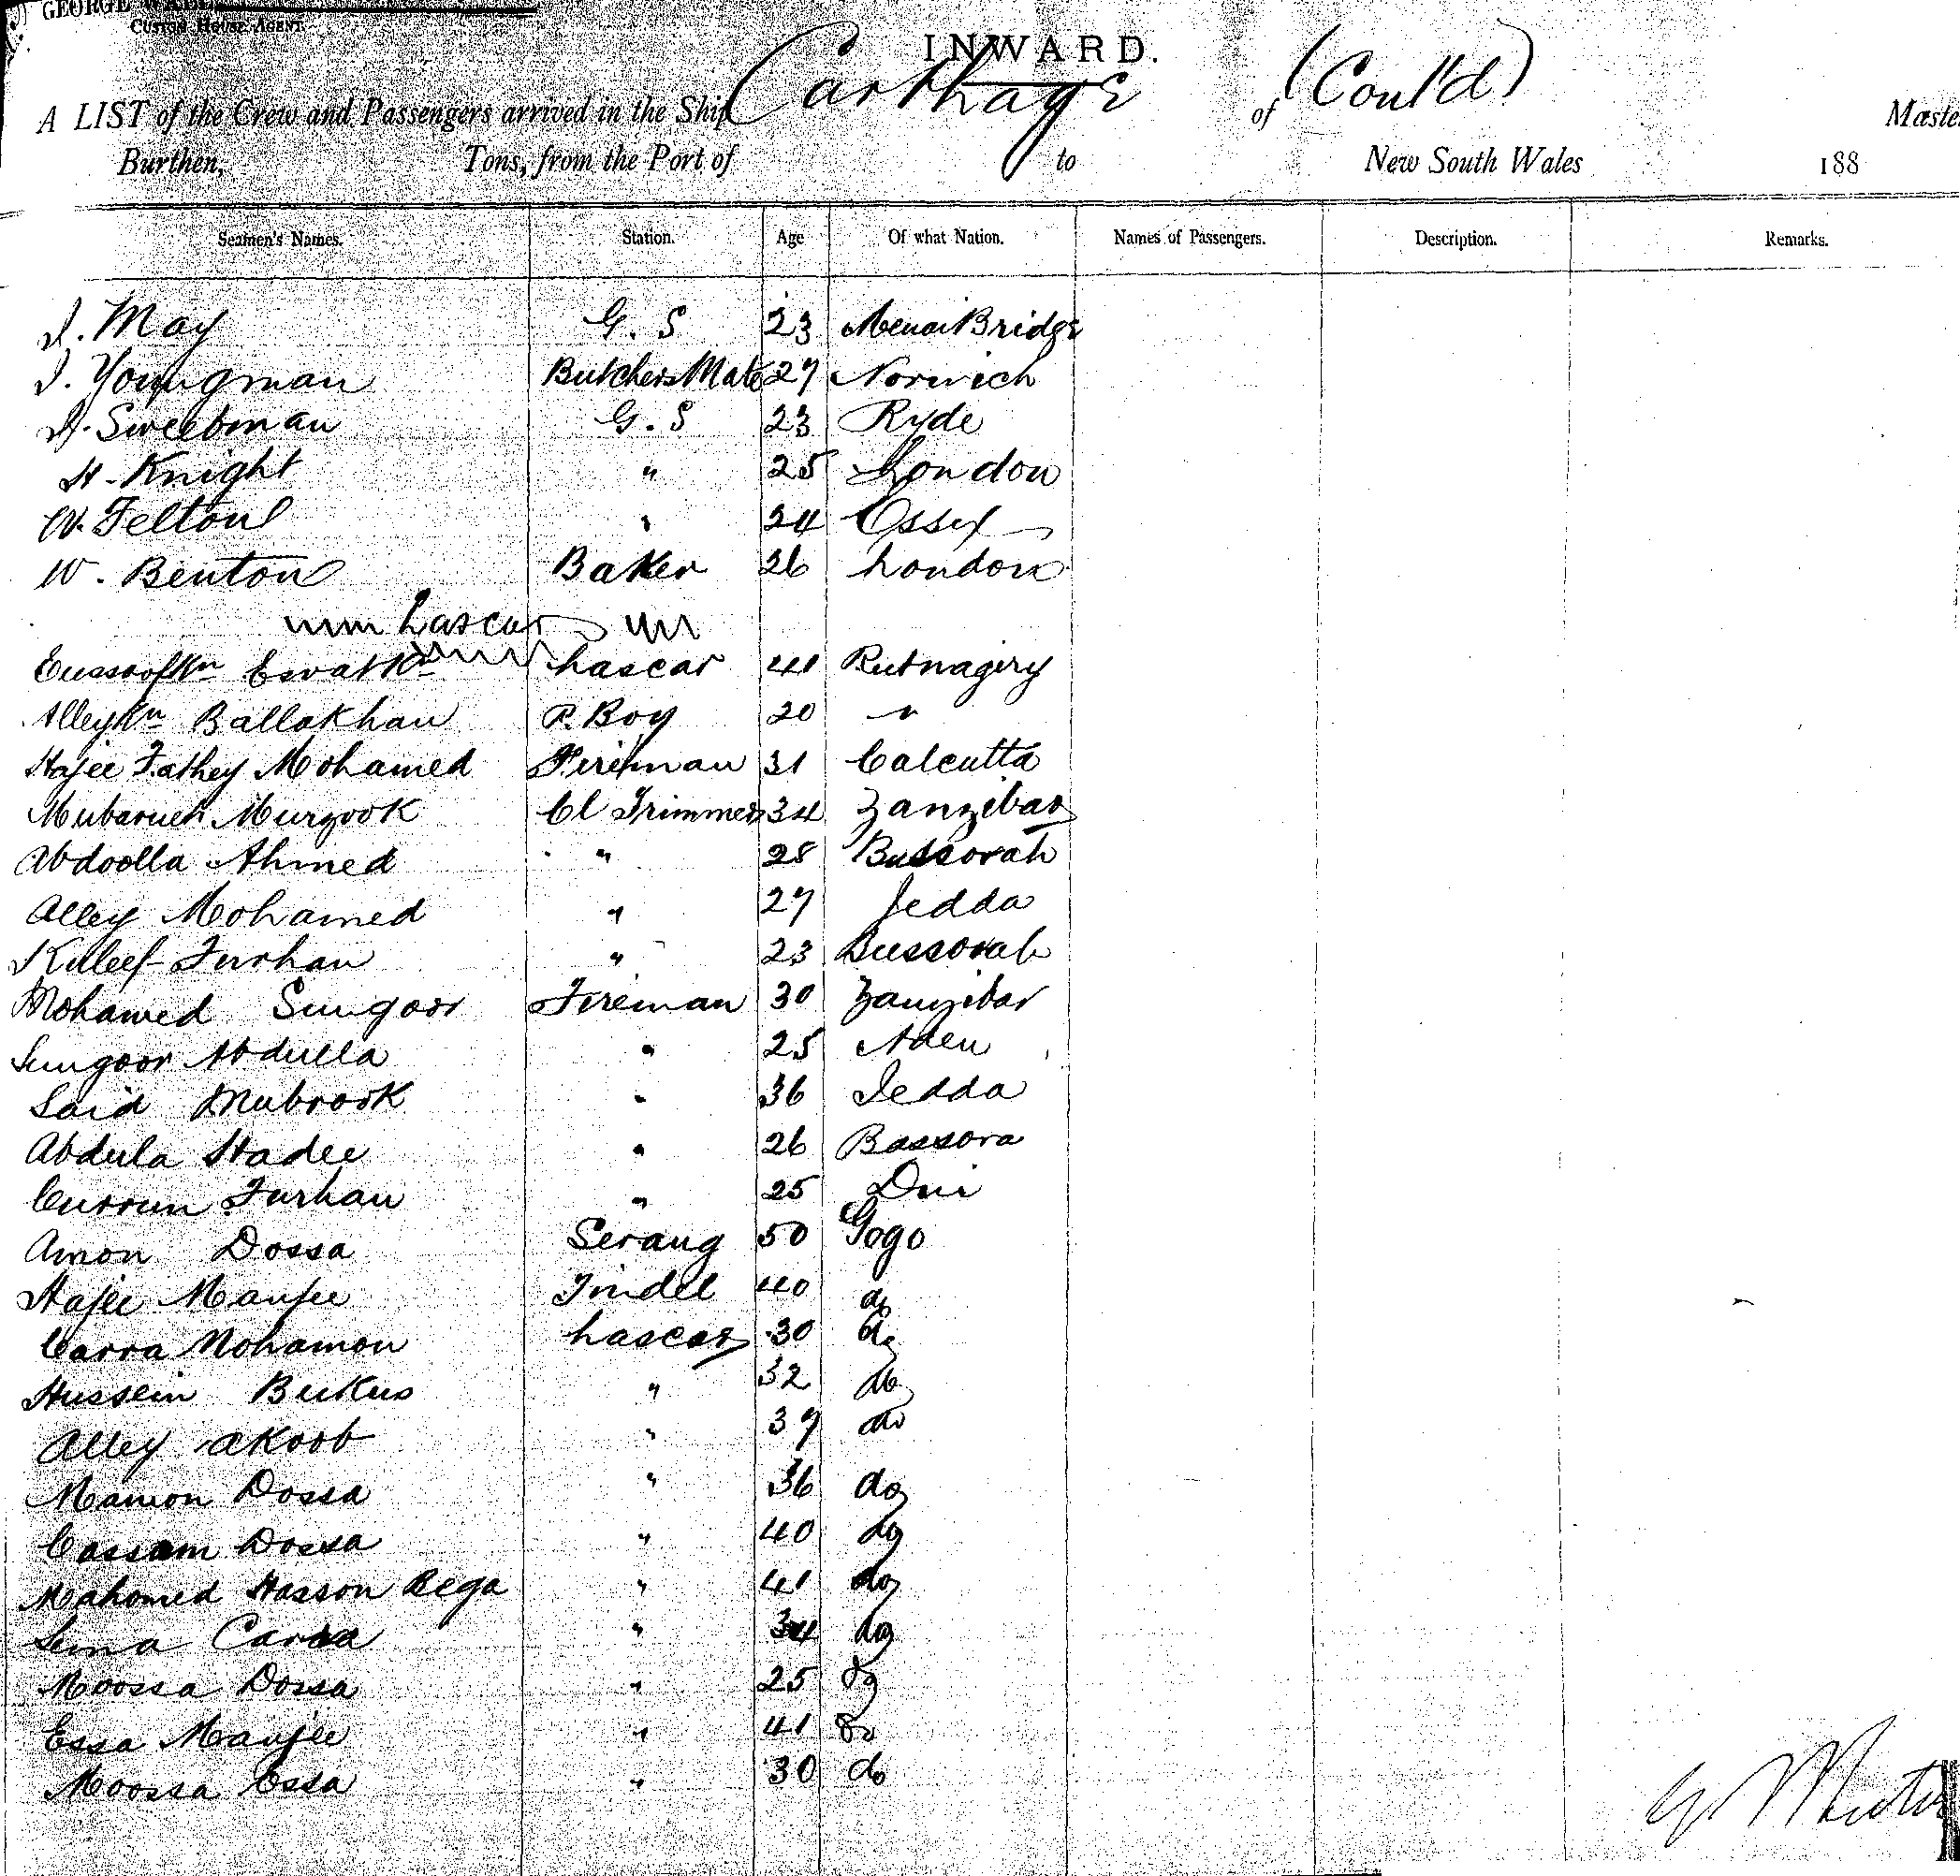 GEORGE WALL
CUSTOM HOUSE AGENT
INWARD.
A LIST of the Crew and Passengers arrived in the Ship Carthage of (Cont'd) Maste
Burthen, Tons, from the Port of to New South Wales 188
Seamen's Names. Station. Age Of what Nation. Names of Passengers. Description. Remarks.
J. May G. S 23 Menai Bridge
J. Youngman Butchers Mate 27 Norwich
J. Sweetman G. S 23 Ryde
H. Knight " 25 London
W. Felton " 24 Essex
W. Benton Baker 26 London
Lascars
Eussoof Kn Esvat Kn Lascar 41 Rutnagiry
Alley Kn Ballakhan P. Boy 20 "
Hajee Fathey Mohamed Fireman 31 Calcutta
Mubaruck Murzook Cl Trimmer 34 Zanzibar
Abdoolla Ahmed " 28 Bussorah
Alley Mohamed " 27 Jedda
Kulleef Furhan " 23 Bussorah
Mohamed Sungoor Fireman 30 Zanzibar
Sungoor Abdulla " 25 Aden
Said Mubrook " 36 Jedda
Abdula Hadee " 26 Bassora
Currum Furhan " 25 Diu
Amon Dossa Serang 50 Gogo
Hajee Manjee Tindel 40 do
Carra Mohamon Lascar 30 do
Hussein Bukus " 32 do
Alley Akoob " 37 do
Mamon Dossa " 36 do
Cassam Dossa " 40 do
Mahomed Hasson Rega " 41 do
Carra " 34 do
Moossa Dossa " 25 do
Essa Manjee " 41 do
Moossa Essa " 30 do